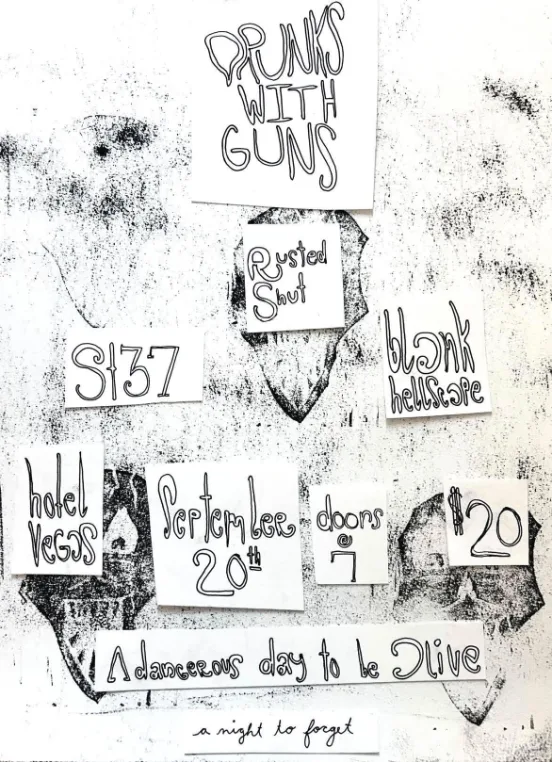 DRUNKS
WITH
GUNS
Rusted
Shut
St37
blank
hellscape
hotel
VEGAS
September
20th
doors
@
7
$20
A dangerous day to be alive
a night to forget